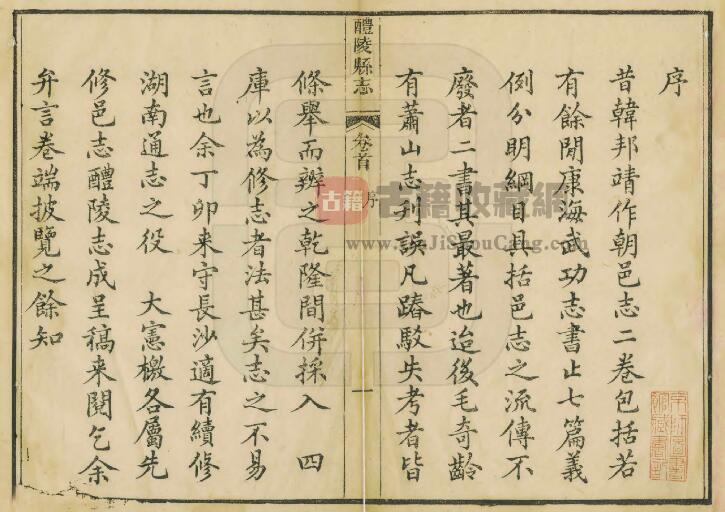 序
昔韓邦靖作朝邑志二卷包括若
有餘閒康海武功志書止七篇義
例分明綱目具括邑志之流傳不
廢者二書其最著也迨後毛奇齡
有蕭山志刋誤凡踳駁失考者皆
醴陵縣志
卷首
序
一
條舉而辨之乾隆間併採入 四
庫以為修志者法甚矣志之不易
言也余丁卯来守長沙適有續修
湖南通志之役 大憲檄各屬先
修邑志醴陵志成呈稿来閱乞余
弁言卷端披覽之餘知
古籍
古籍收藏網
www.GuJiShouCang.com